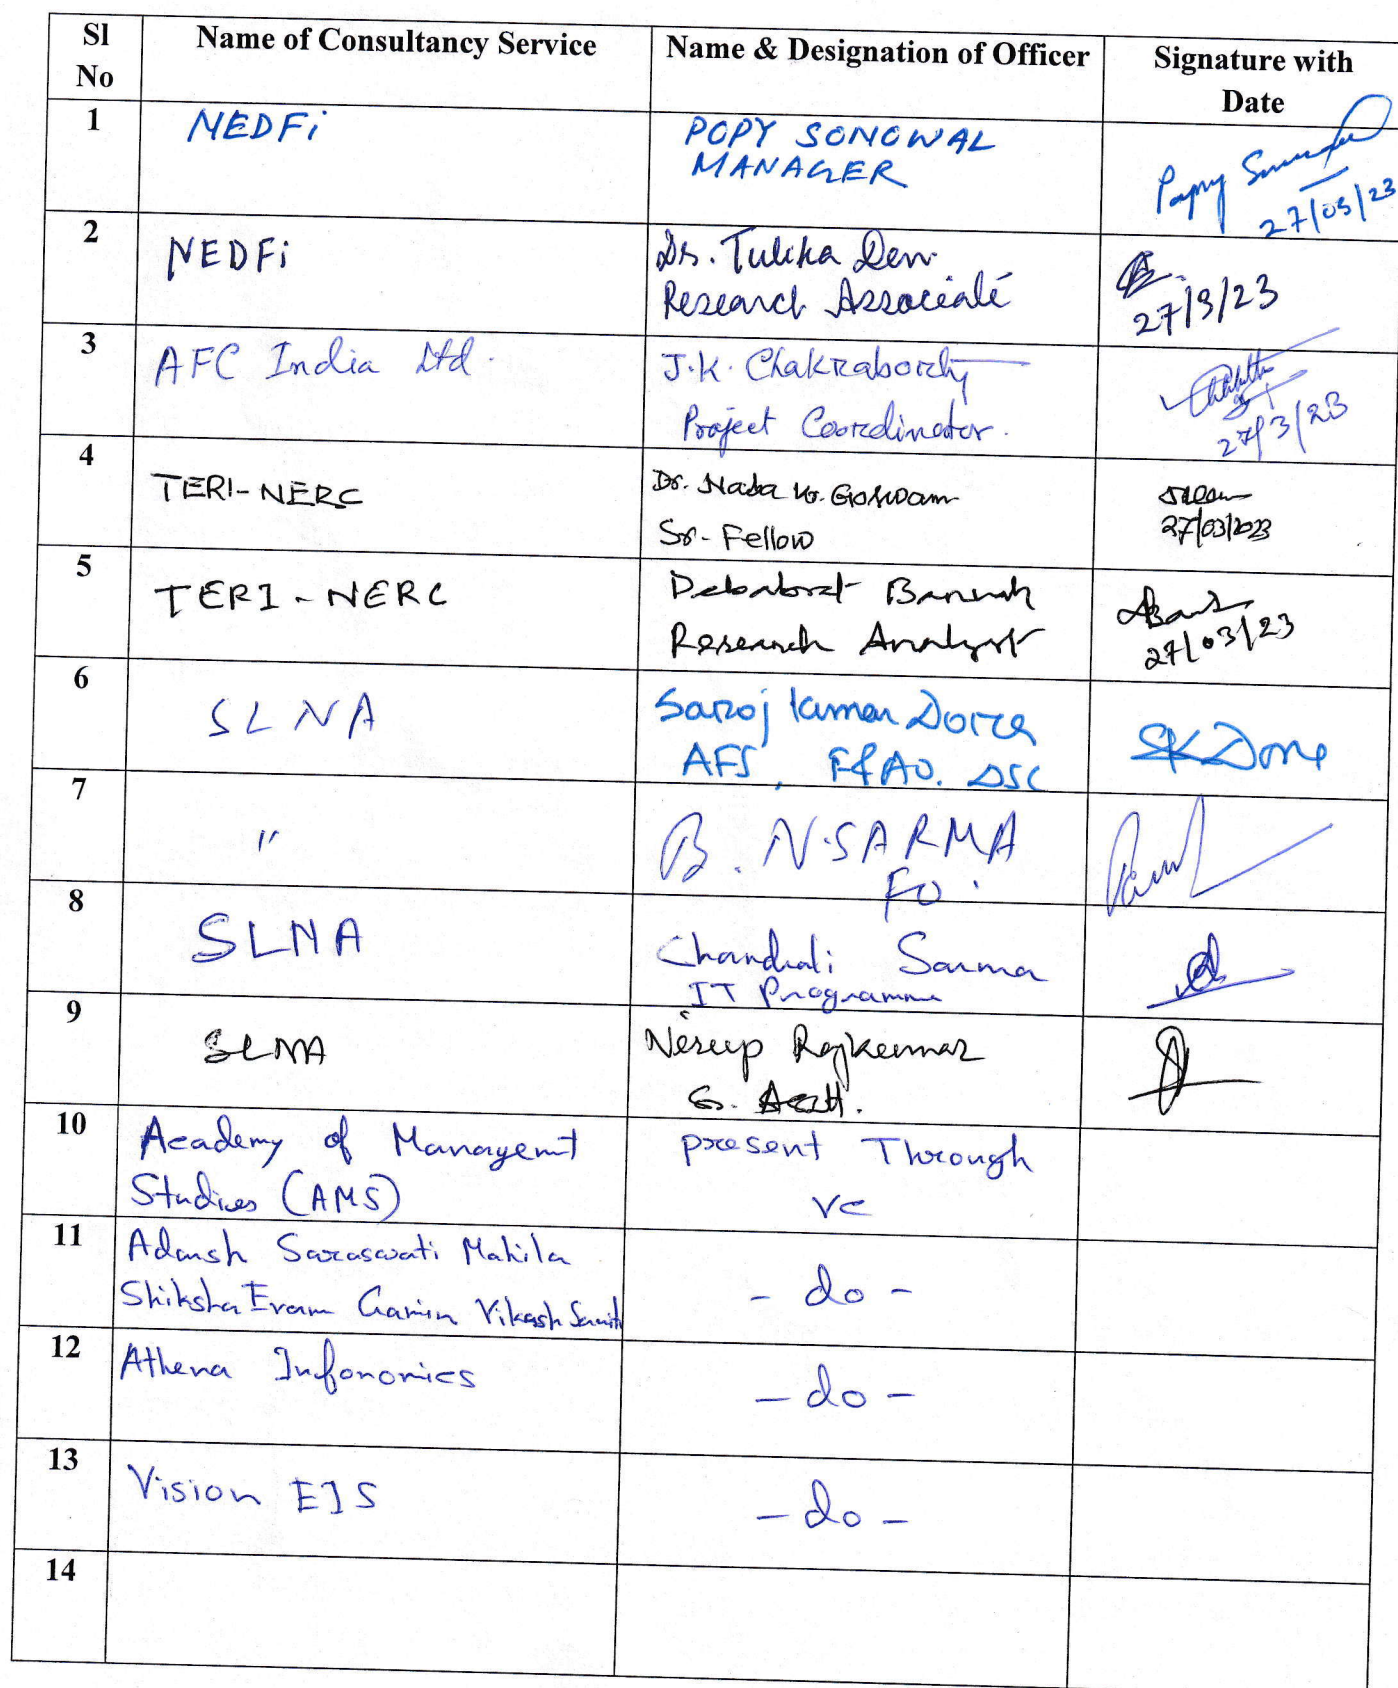 Sl No
Name of Consultancy Service
Name & Designation of Officer
Signature with Date
1
NEDFi
POPY SONOWAL
MANAGER
27/03/23
2
NEDFi
Dr. Tulika Devi
Research Associate
27/3/23
3
AFC India Ltd.
J.K. Chakraborty
Project Coordinator.
27/3/23
4
TERI-NERC
Dr. Naba Kr. Goswami
Sr. Fellow
27/03/2023
5
TERI-NERC
Debabrat Baruah
Research Analyst
27/03/23
6
SLNA
Saroj Kumar Dorra
AFS, F&AO. DSC
SK Dorra
7
"
B. N. SARMA
FO.
8
SLNA
Chandrali Sarma
IT Programme
9
SLNA
Rajkumar
10
Academy of Management
Studies (AMS)
present Through
VC
11
Adarsh Saraswati Mahila
Shiksha Evam Gamin Vikash Samiti
- do -
12
Athena Infonomics
- do -
13
Vision EIS
- do -
14